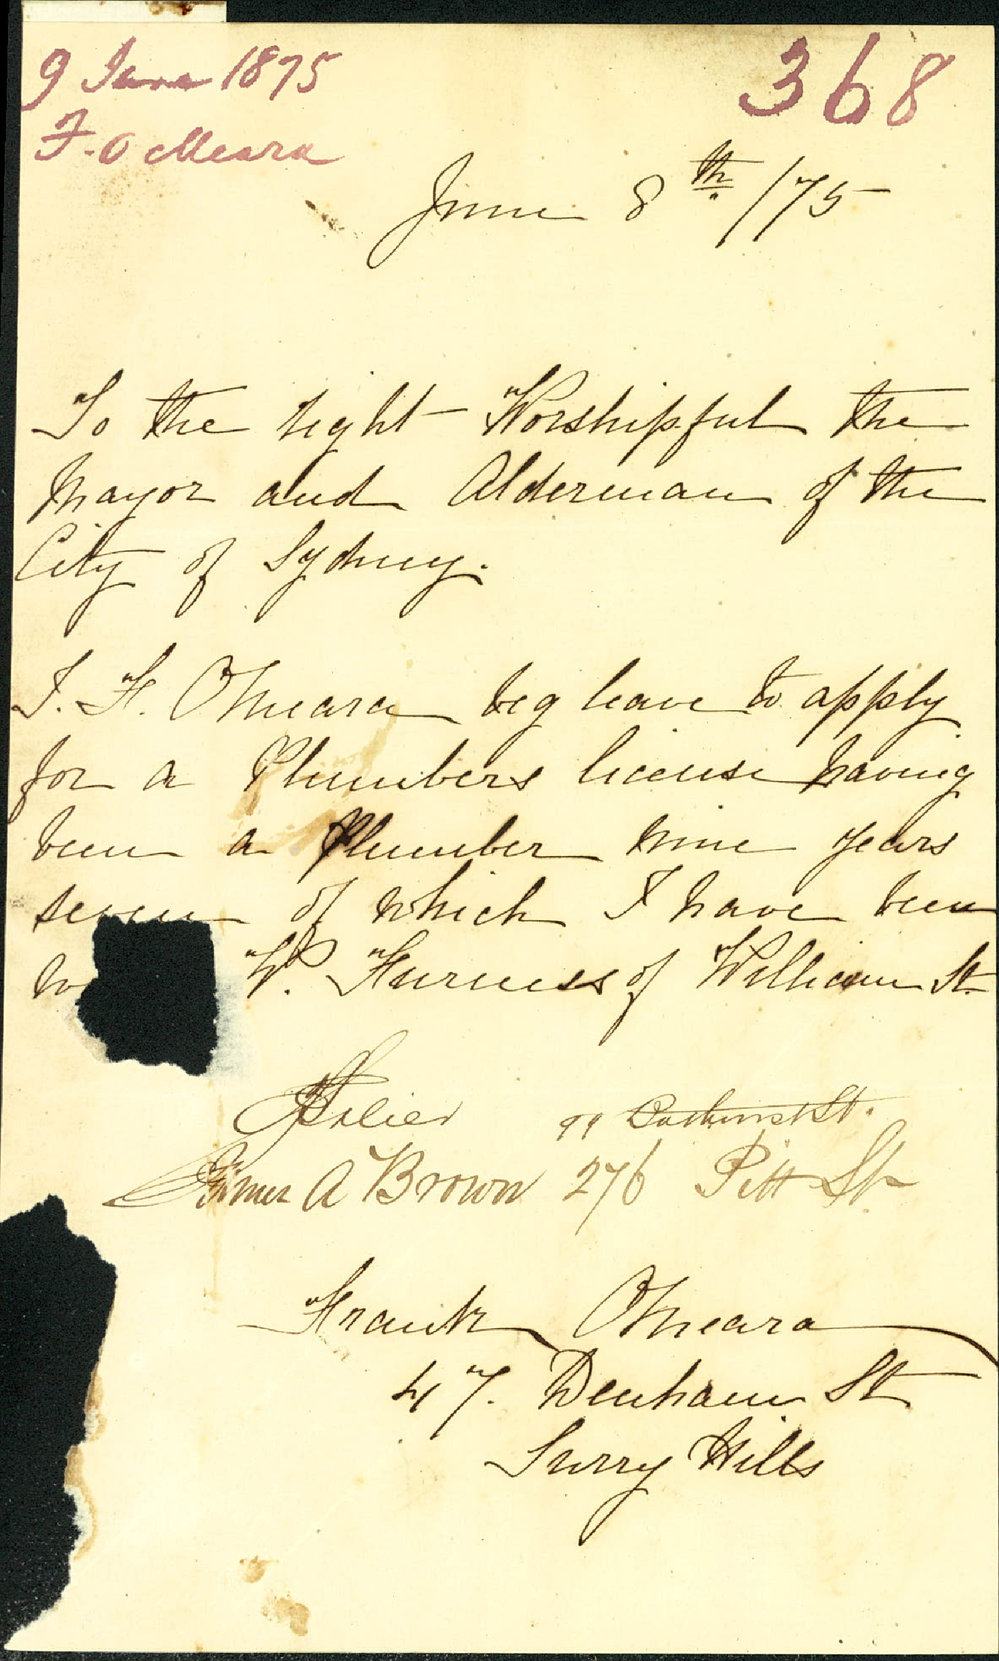 9 June 1875
368
F. O Meara
June 8th /75
To the right Worshipful the
Mayor and Alderman of the
City of Sydney.
I. F. OMeara beg leave to apply
for a Plumbers license having
been a Plumber nine years
seven of which I have been
W. Furness of William St
99 Bathurst St.
James A Brown 276 Pitt St
Frank OMeara
47. Denham St
Surry Hills